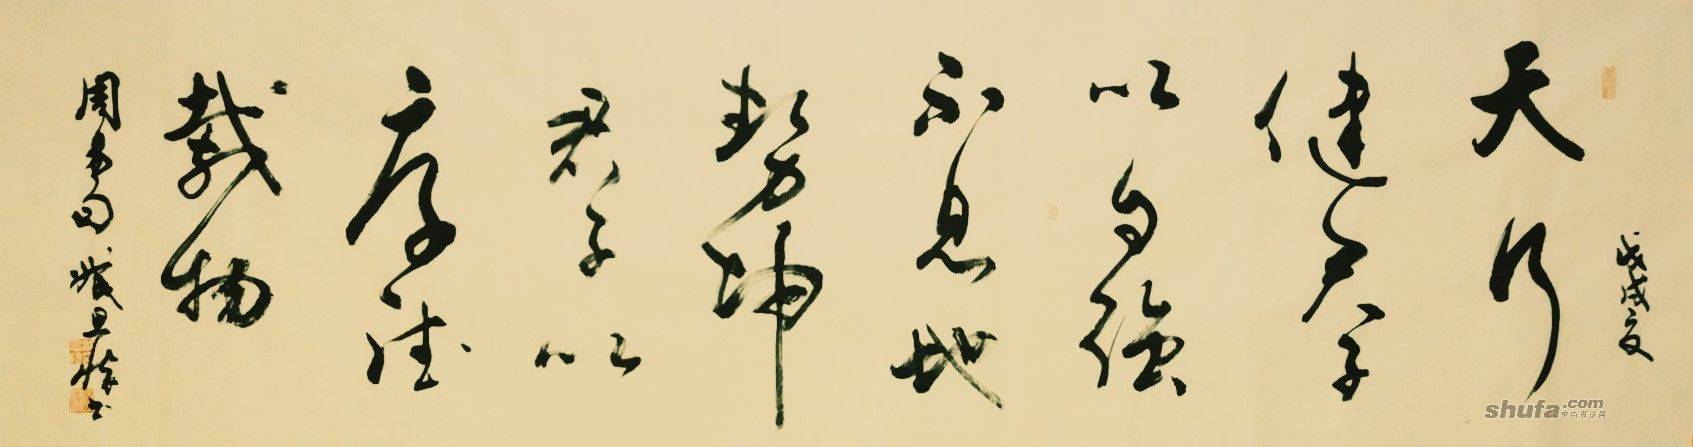 戊戌夏
天行
健君子
以自强
不息地
势坤
君子以
厚德
载物
周易句
shufa.com
中国书法网